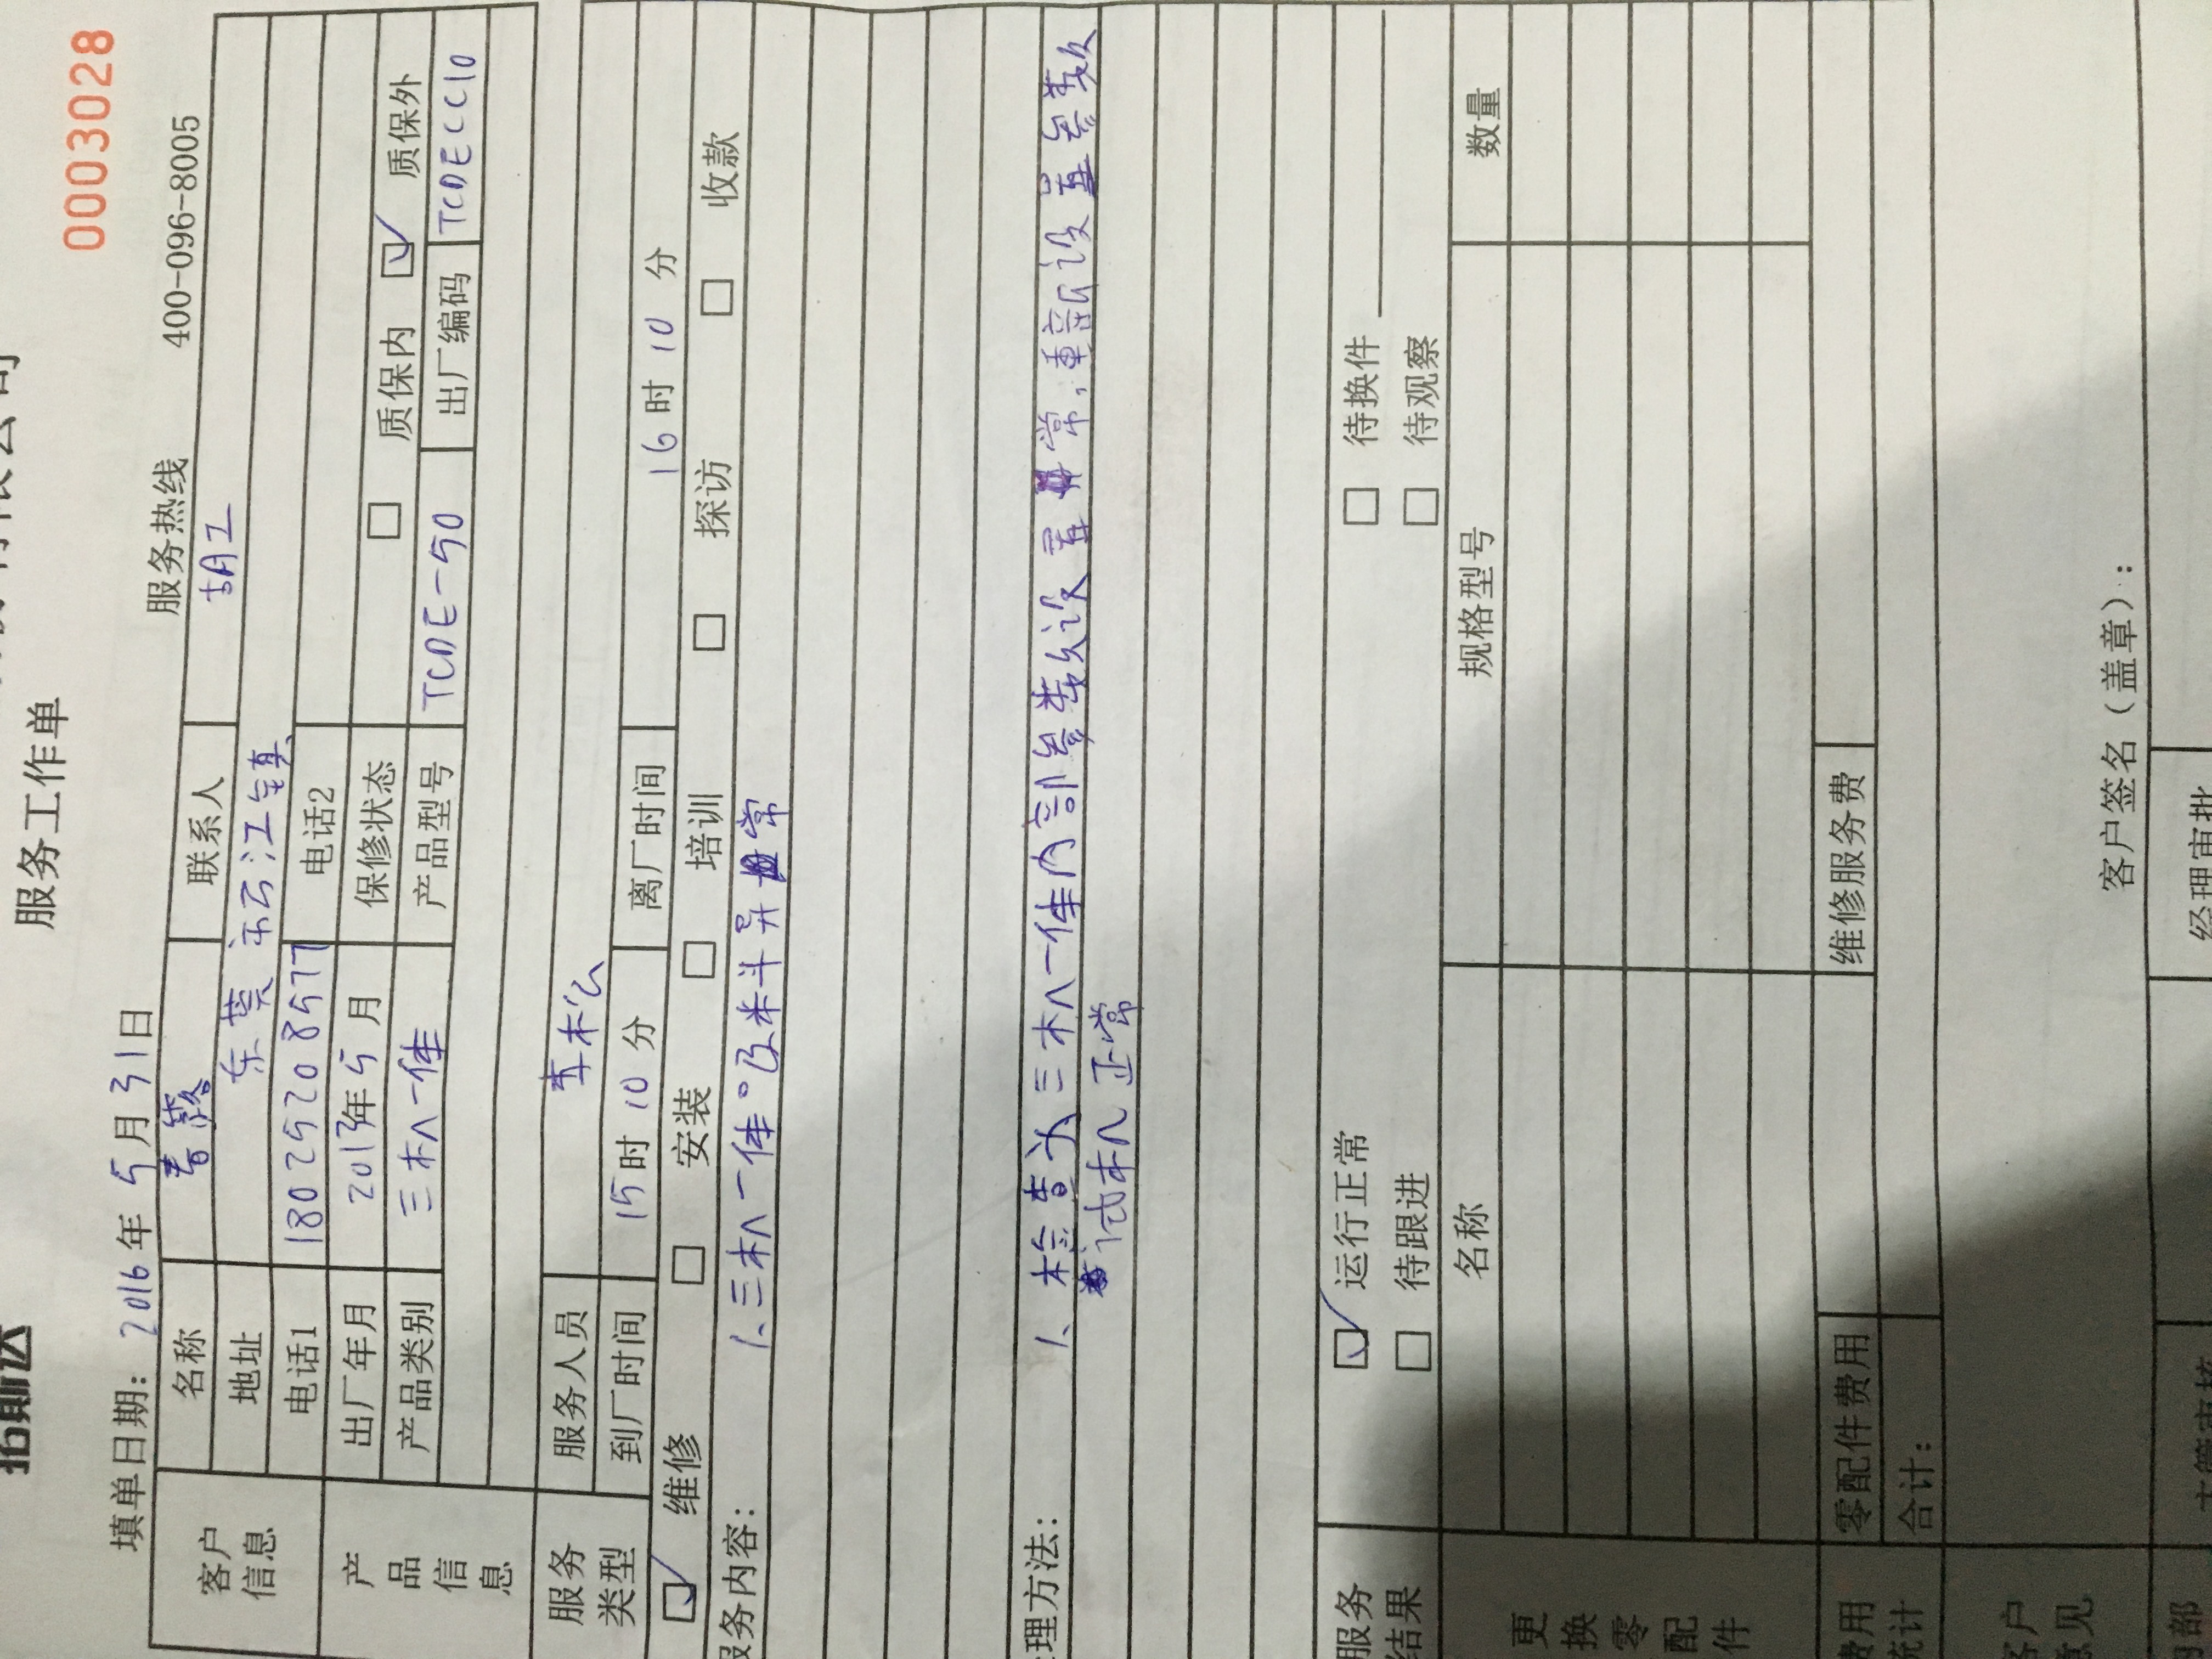 拓斯达
服务工作单
0003028
填单日期: 2016年5月31日 服务热线 400-096-8005
客户信息 名称 春露 联系人 胡工
地址 东莞市石江镇
电话1 18025208577 电话2
产品信息 出厂年月 2013年5月 保修状态 □ 质保内 ☑ 质保外
产品类别 三机一体 产品型号 TCDE-50 出厂编码 TCDECC10
服务类型 服务人员 李松
到厂时间 15时10分 离厂时间 16时10分
☑ 维修 □ 安装 □ 培训 □ 探访 □ 收款
服务内容: 1、三机一体吸料斗异常
理方法: 1、检查为三机一体内部参数设置异常,重新设置参数
试机正常
服务结果 ☑ 运行正常 □ 待换件
□ 待跟进 □ 待观察
更换零配件 名称 规格型号 数量
费用统计 零配件费用 维修服务费
合计:
客户意见
客户签名（盖章）:
经理审批